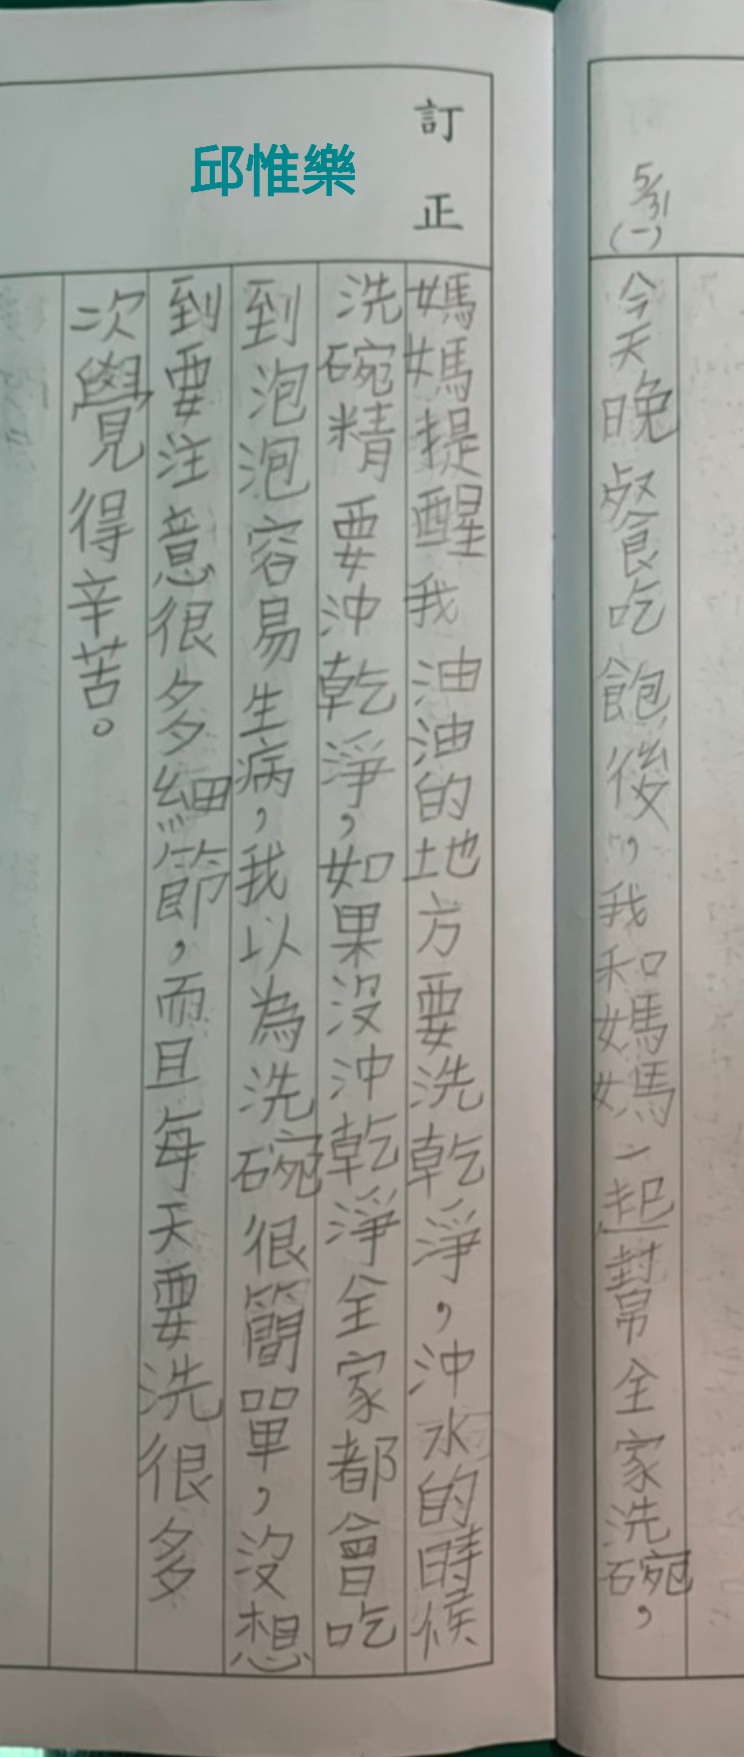 5/31
(一)
今天晚餐吃飽後，我和媽媽一起幫全家洗碗，
訂正
邱惟樂
媽媽提醒我油油的地方要洗乾淨，沖水的時候
洗碗精要沖乾淨，如果沒沖乾淨全家都會吃
到泡泡容易生病，我以為洗碗很簡單，沒想
到要注意很多細節，而且每天要洗很多
次覺得辛苦。